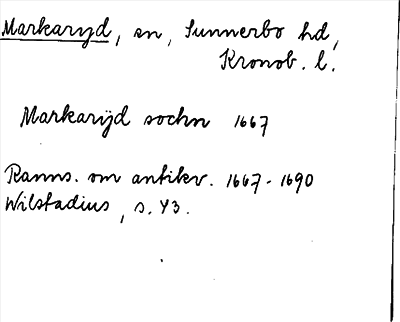 Markaryd, sn, Sunnerbo hd,
Kronob. l.
Markarijd sochn 1667
Ranns. om antikv. 1667-1690
Wilstadius, s. 43.